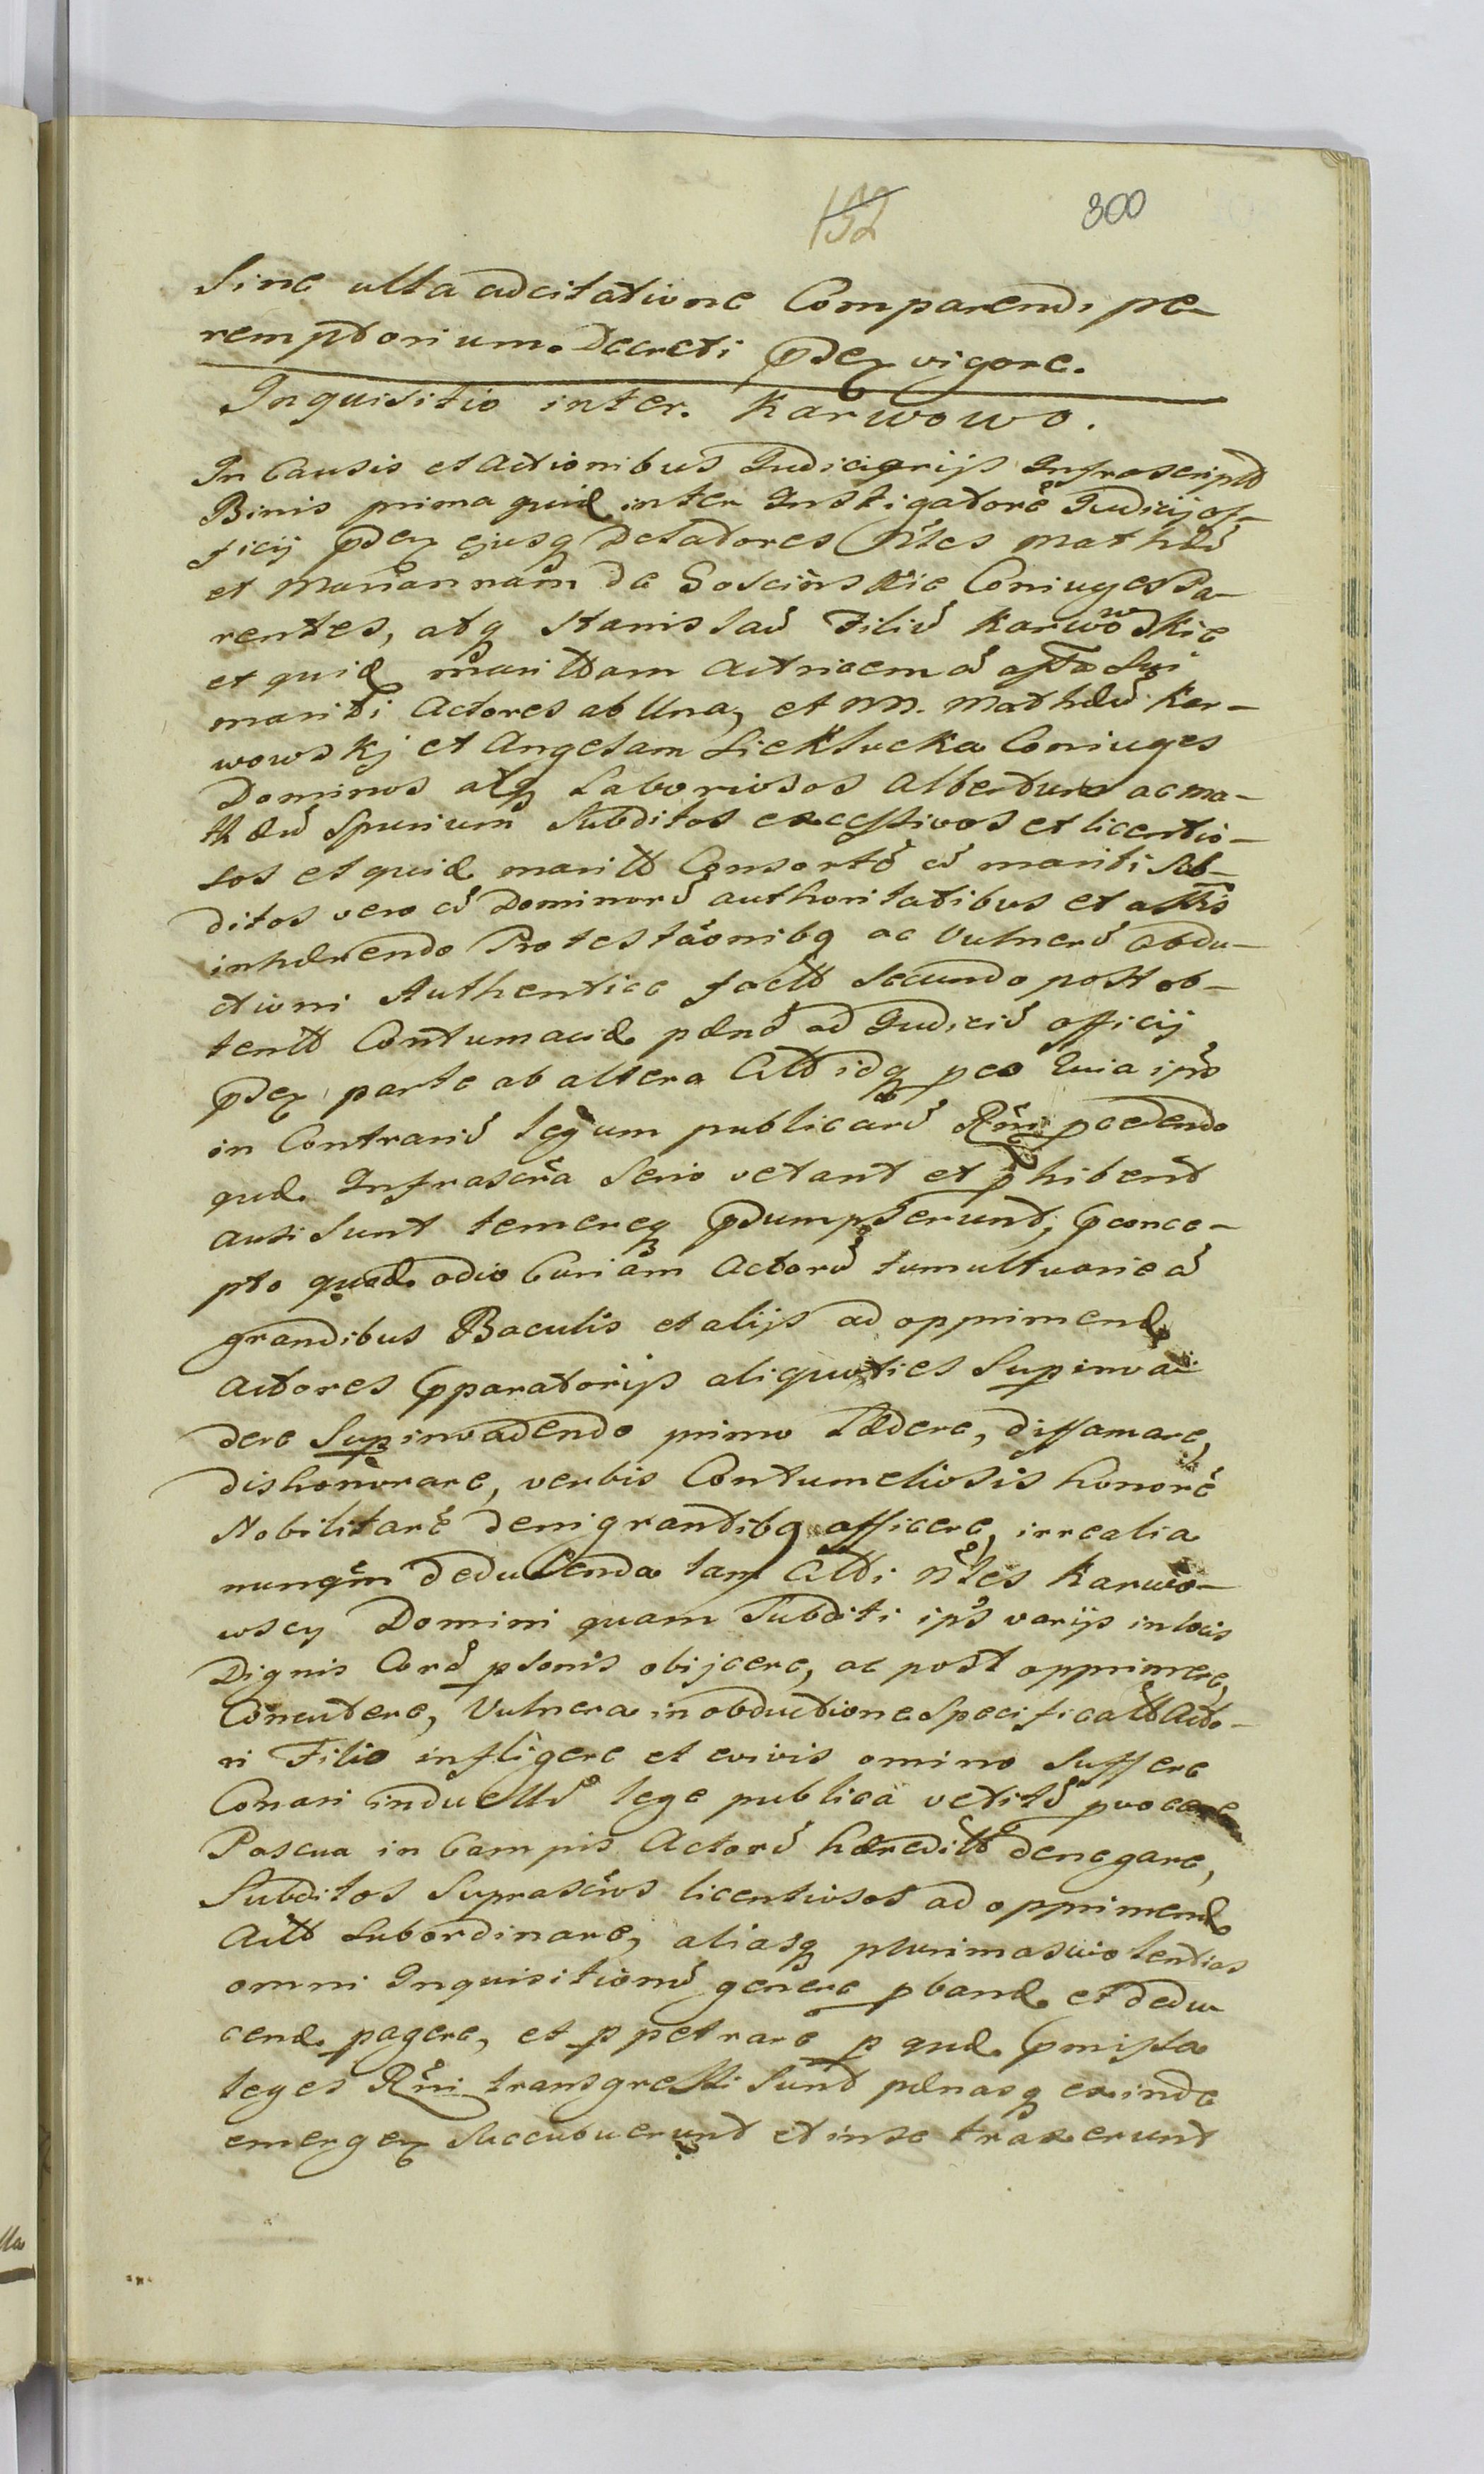 152 300
Sine ulla adcitatione Comparendi pe-
remptorium. Decreti pdex vigore.
Inquisitio inter. Karwowo.
In Causis et Actionibus Judiciarijs Infrascriptt
Binis prima quid inter Instigatorē Judicij of-
ficij pdex ejusq Delatores Nles Mathæū
et Mariannam de Gosciñskie Coniuges Pa-
rentes, atq Stanisłaū Filiū Karwowskie
et quid maritam Actricem cū asstā Sui
mariti Actores ab Una, et NN. Mathæū Kar-
wowskj et Angelam Liekłucka Coniuges
Dominos atq Laboriosos Albertum ac Ma-
thæū Spurium Subditos excessivos et licentio-
sos et quid maritt Consortē cū mariti Sub-
ditos vero cū Dominorū authoritatibus et asstis
inhærendo Protestāōnibq ac Vulnerū Obdu-
ctioni Authenticc factt secundo post ob-
tentt Contumaciæ pænā ad Judiciū officij
pdex parte ab altera Citt idq peo Quia ipsi
in Contrariū legum publicarū Rñi pcedendo
quæ Infrascrā Serio vetant et phibent
ausi sunt temereq psumpserunt, pconce-
pto quod. odio Curiam Actorū tumultuarie cū
grandibus Baculis et alijs ad opprimend
Actores pparatorijs aliquoties Supinva
dere Supinvadendo primo Lædere, diffamare,
dishonorare, verbis Contumeliosis honorē
Nobilitarē denigrantibq afficere, irrealia
nunqm deducenda tam Citti Nles Karwo-
wscy Domini quam Subditi ips varijs in locis
Dignis Corā psonis objicere, ac post opprimere,
Concutere, Vulnera in obductione specificatt Acto-
ri Filio infligere et evivis omino Suffere
Conari induellū lege publica vetitū pvocare
Pascua in Campis Actorū hæreditt denegare,
Subditos Suprascrtos licentiosos ad opprimend
Actt Subordinare, aliasq plurimas violentias
omni Inquisitionū genere pband. et dedu
cend. pagere, et ppetrare p quæ pmissa
leges Rñi transgressi Sunt pænasq exinde
emergex Succubuerunt et in se traxerunt